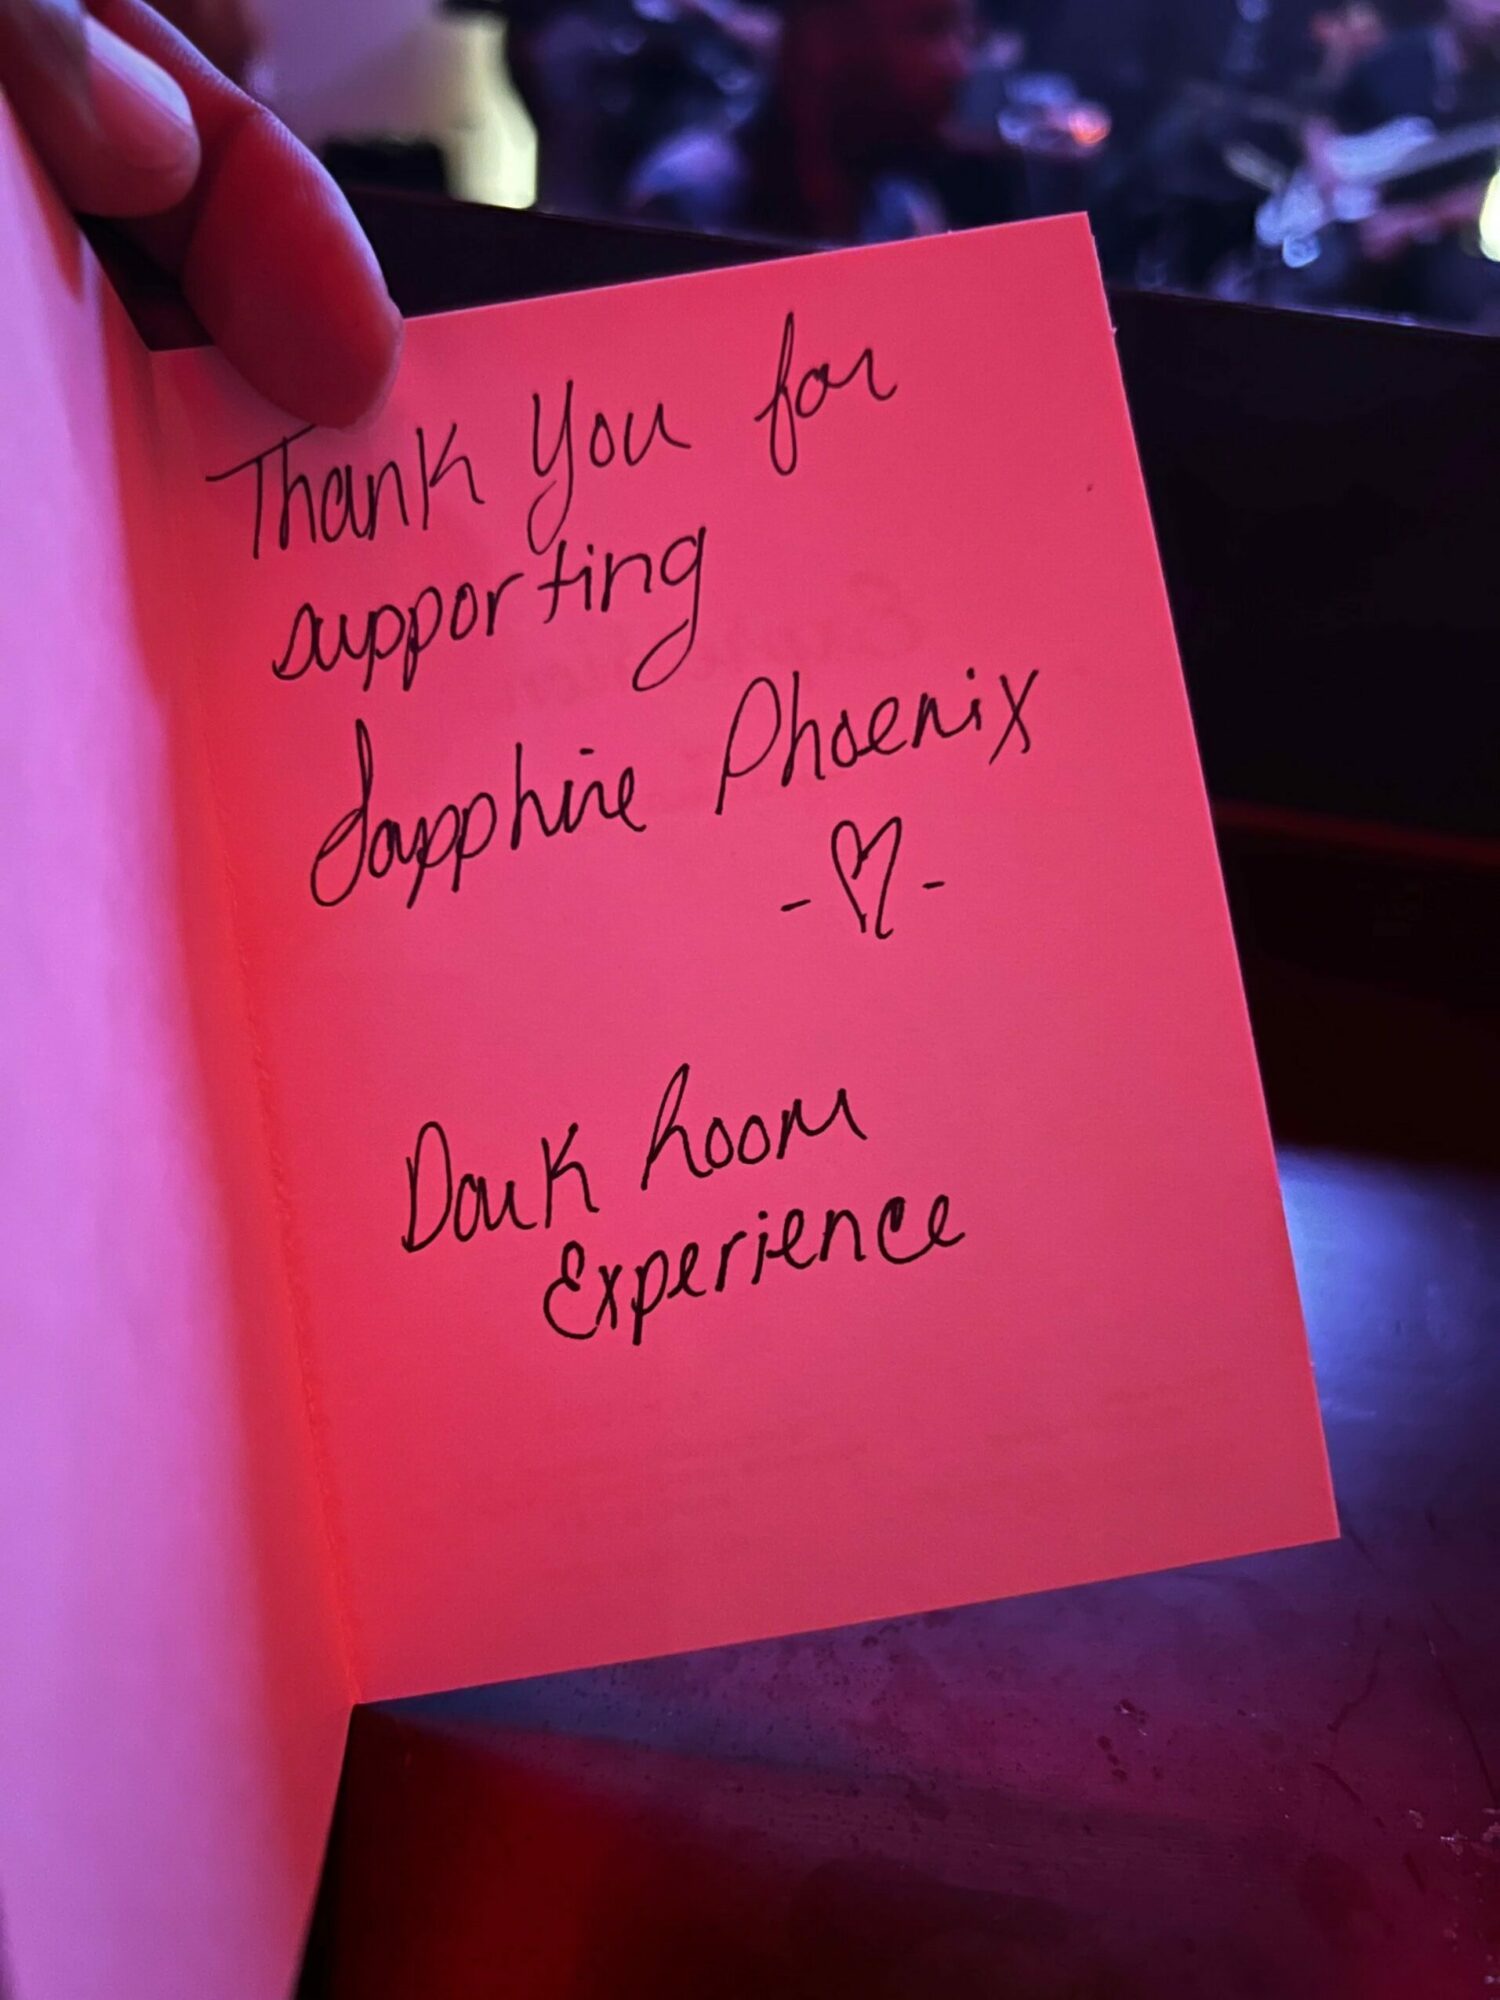 Thank You for
supporting
Sapphire Phoenix
-♡-
Dark Room
Experience